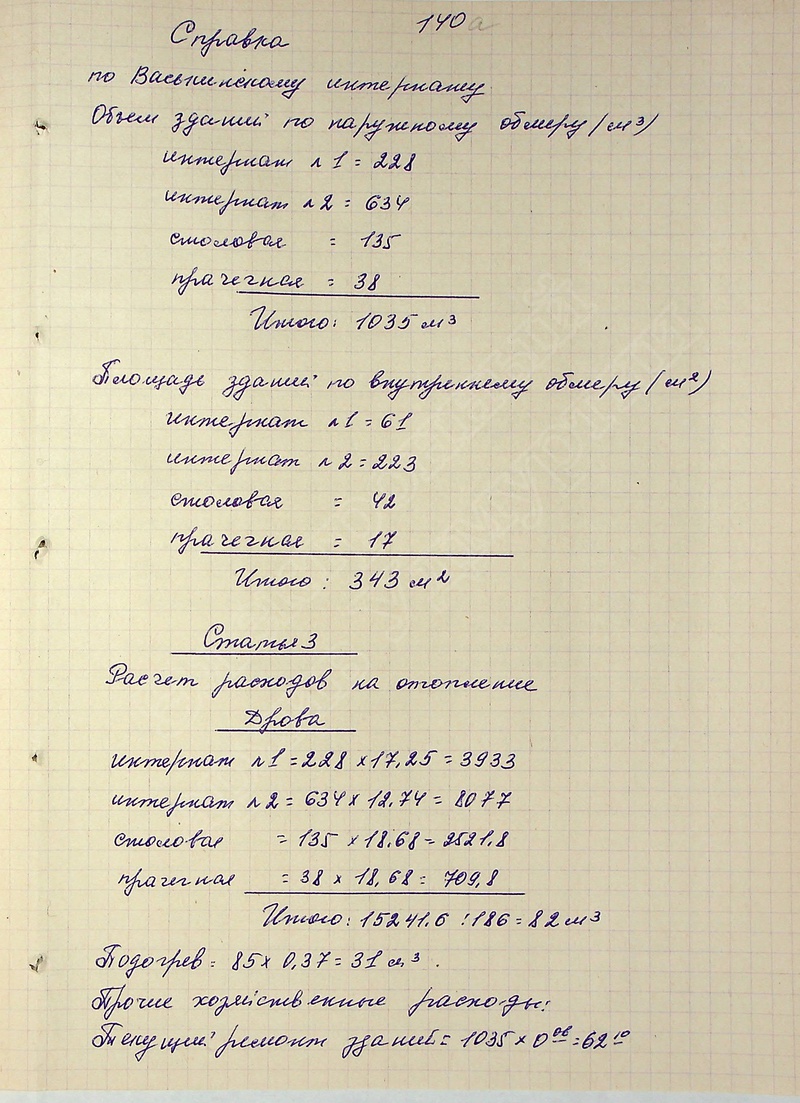 140а
Справка
по Васькинскому интернату
Объем зданий по наружному обмеру (м³)
интернат №1 = 228
интернат №2 = 634
столовая = 135
прачечная = 38
Итого: 1035 м³
Площадь зданий по внутреннему обмеру (м²)
интернат №1 = 61
интернат №2 = 223
столовая = 42
прачечная = 17
Итого: 343 м²
Статья 3
Расчет расходов на отопление
Дрова
интернат №1 = 228 × 17,25 = 3933
интернат №2 = 634 × 12,74 = 8077
столовая = 135 × 18,68 = 2521,8
прачечная = 38 × 18,68 = 709,8
Итого: 15241,6 : 186 = 82 м³
Подогрев = 85 × 0,37 = 31 м³.
Прочие хозяйственные расходы:
Текущий ремонт зданий = 1035 × 0 06 = 62 10